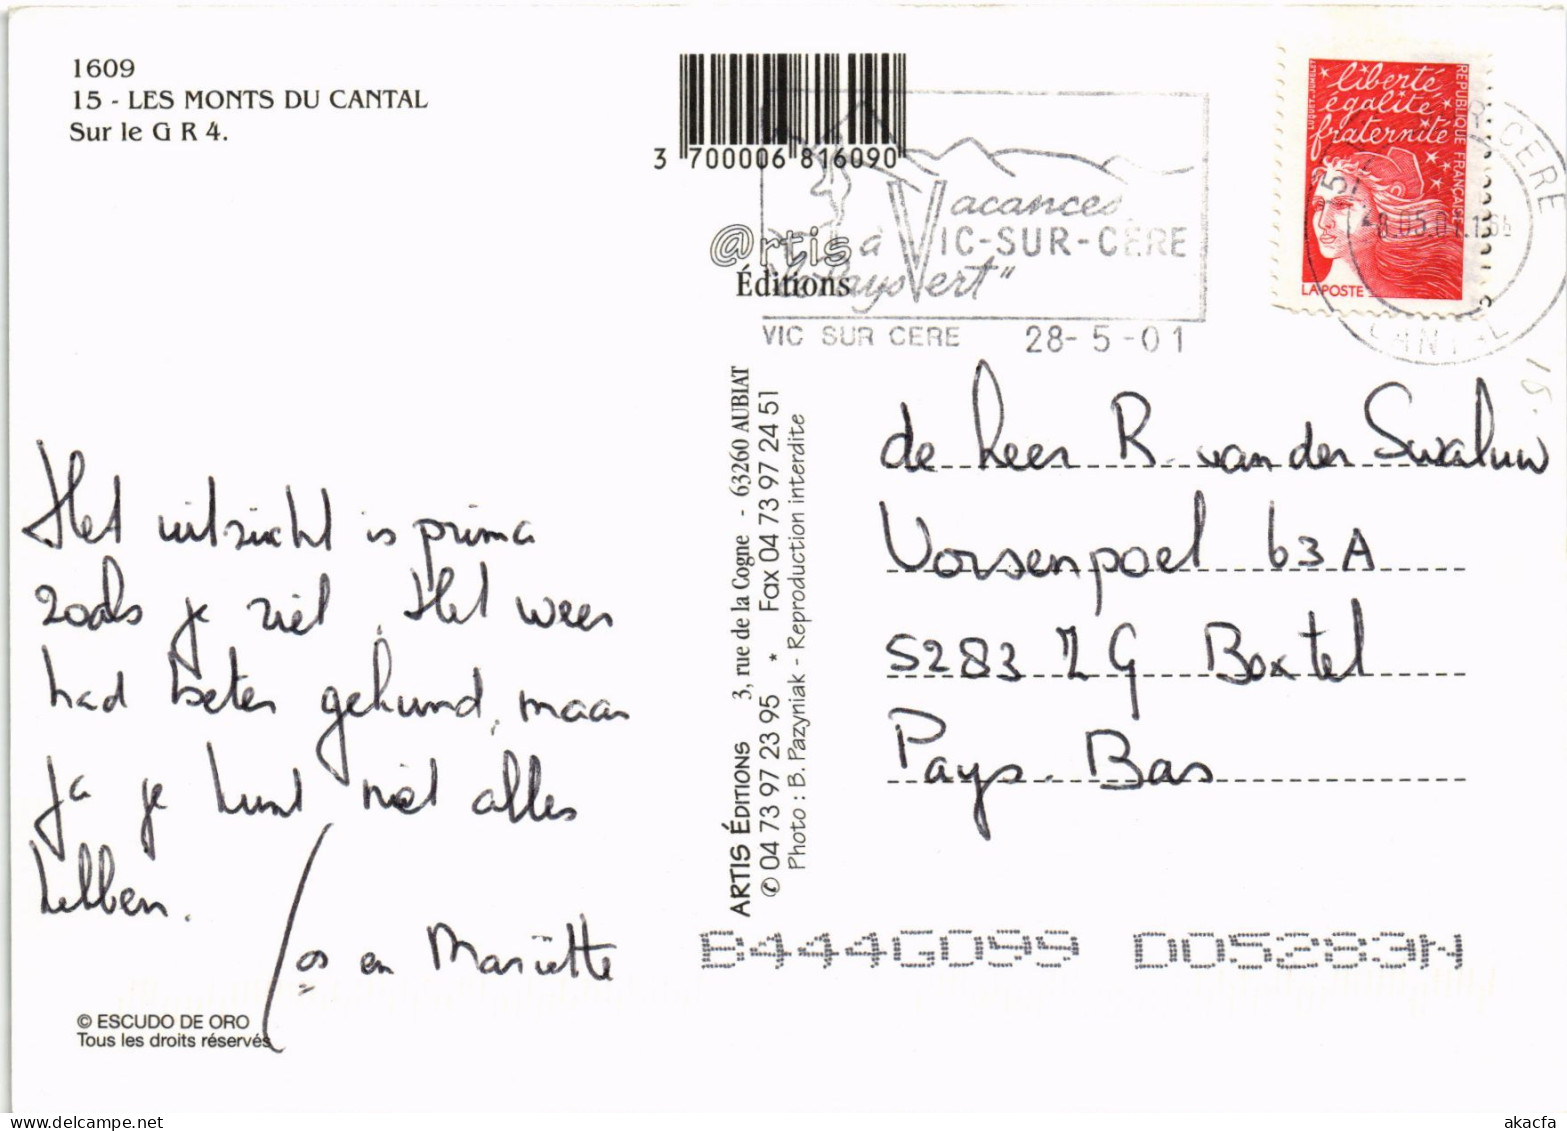 1609
15 - LES MONTS DU CANTAL
Sur le G R 4.
3 700006 816090
@rtis
Éditions
Vacances
à VIC-SUR-CÈRE
"le Pays Vert"
VIC SUR CERE 28-5-01
liberté
égalité
fraternité
RÉPUBLIQUE FRANÇAISE
LA POSTE
CANTAL
Het uitzicht is prima
zoals je ziet. Het weer
had beter gekund, maar
ja je kunt niet alles
hebben.
Jos en Mariëtte
© ESCUDO DE ORO
Tous les droits réservés
ARTIS ÉDITIONS 3, rue de la Cogne - 63260 AUBIAT
✆ 04 73 97 23 95 * Fax 04 73 97 24 51
Photo : B. Pazyniak - Reproduction interdite
de heer R. van der Swaluw
Vorsenpoel 63A
5283 ZG Boxtel
Pays-Bas
B444GD99 DD5283N
www.delcampe.net
akacfa